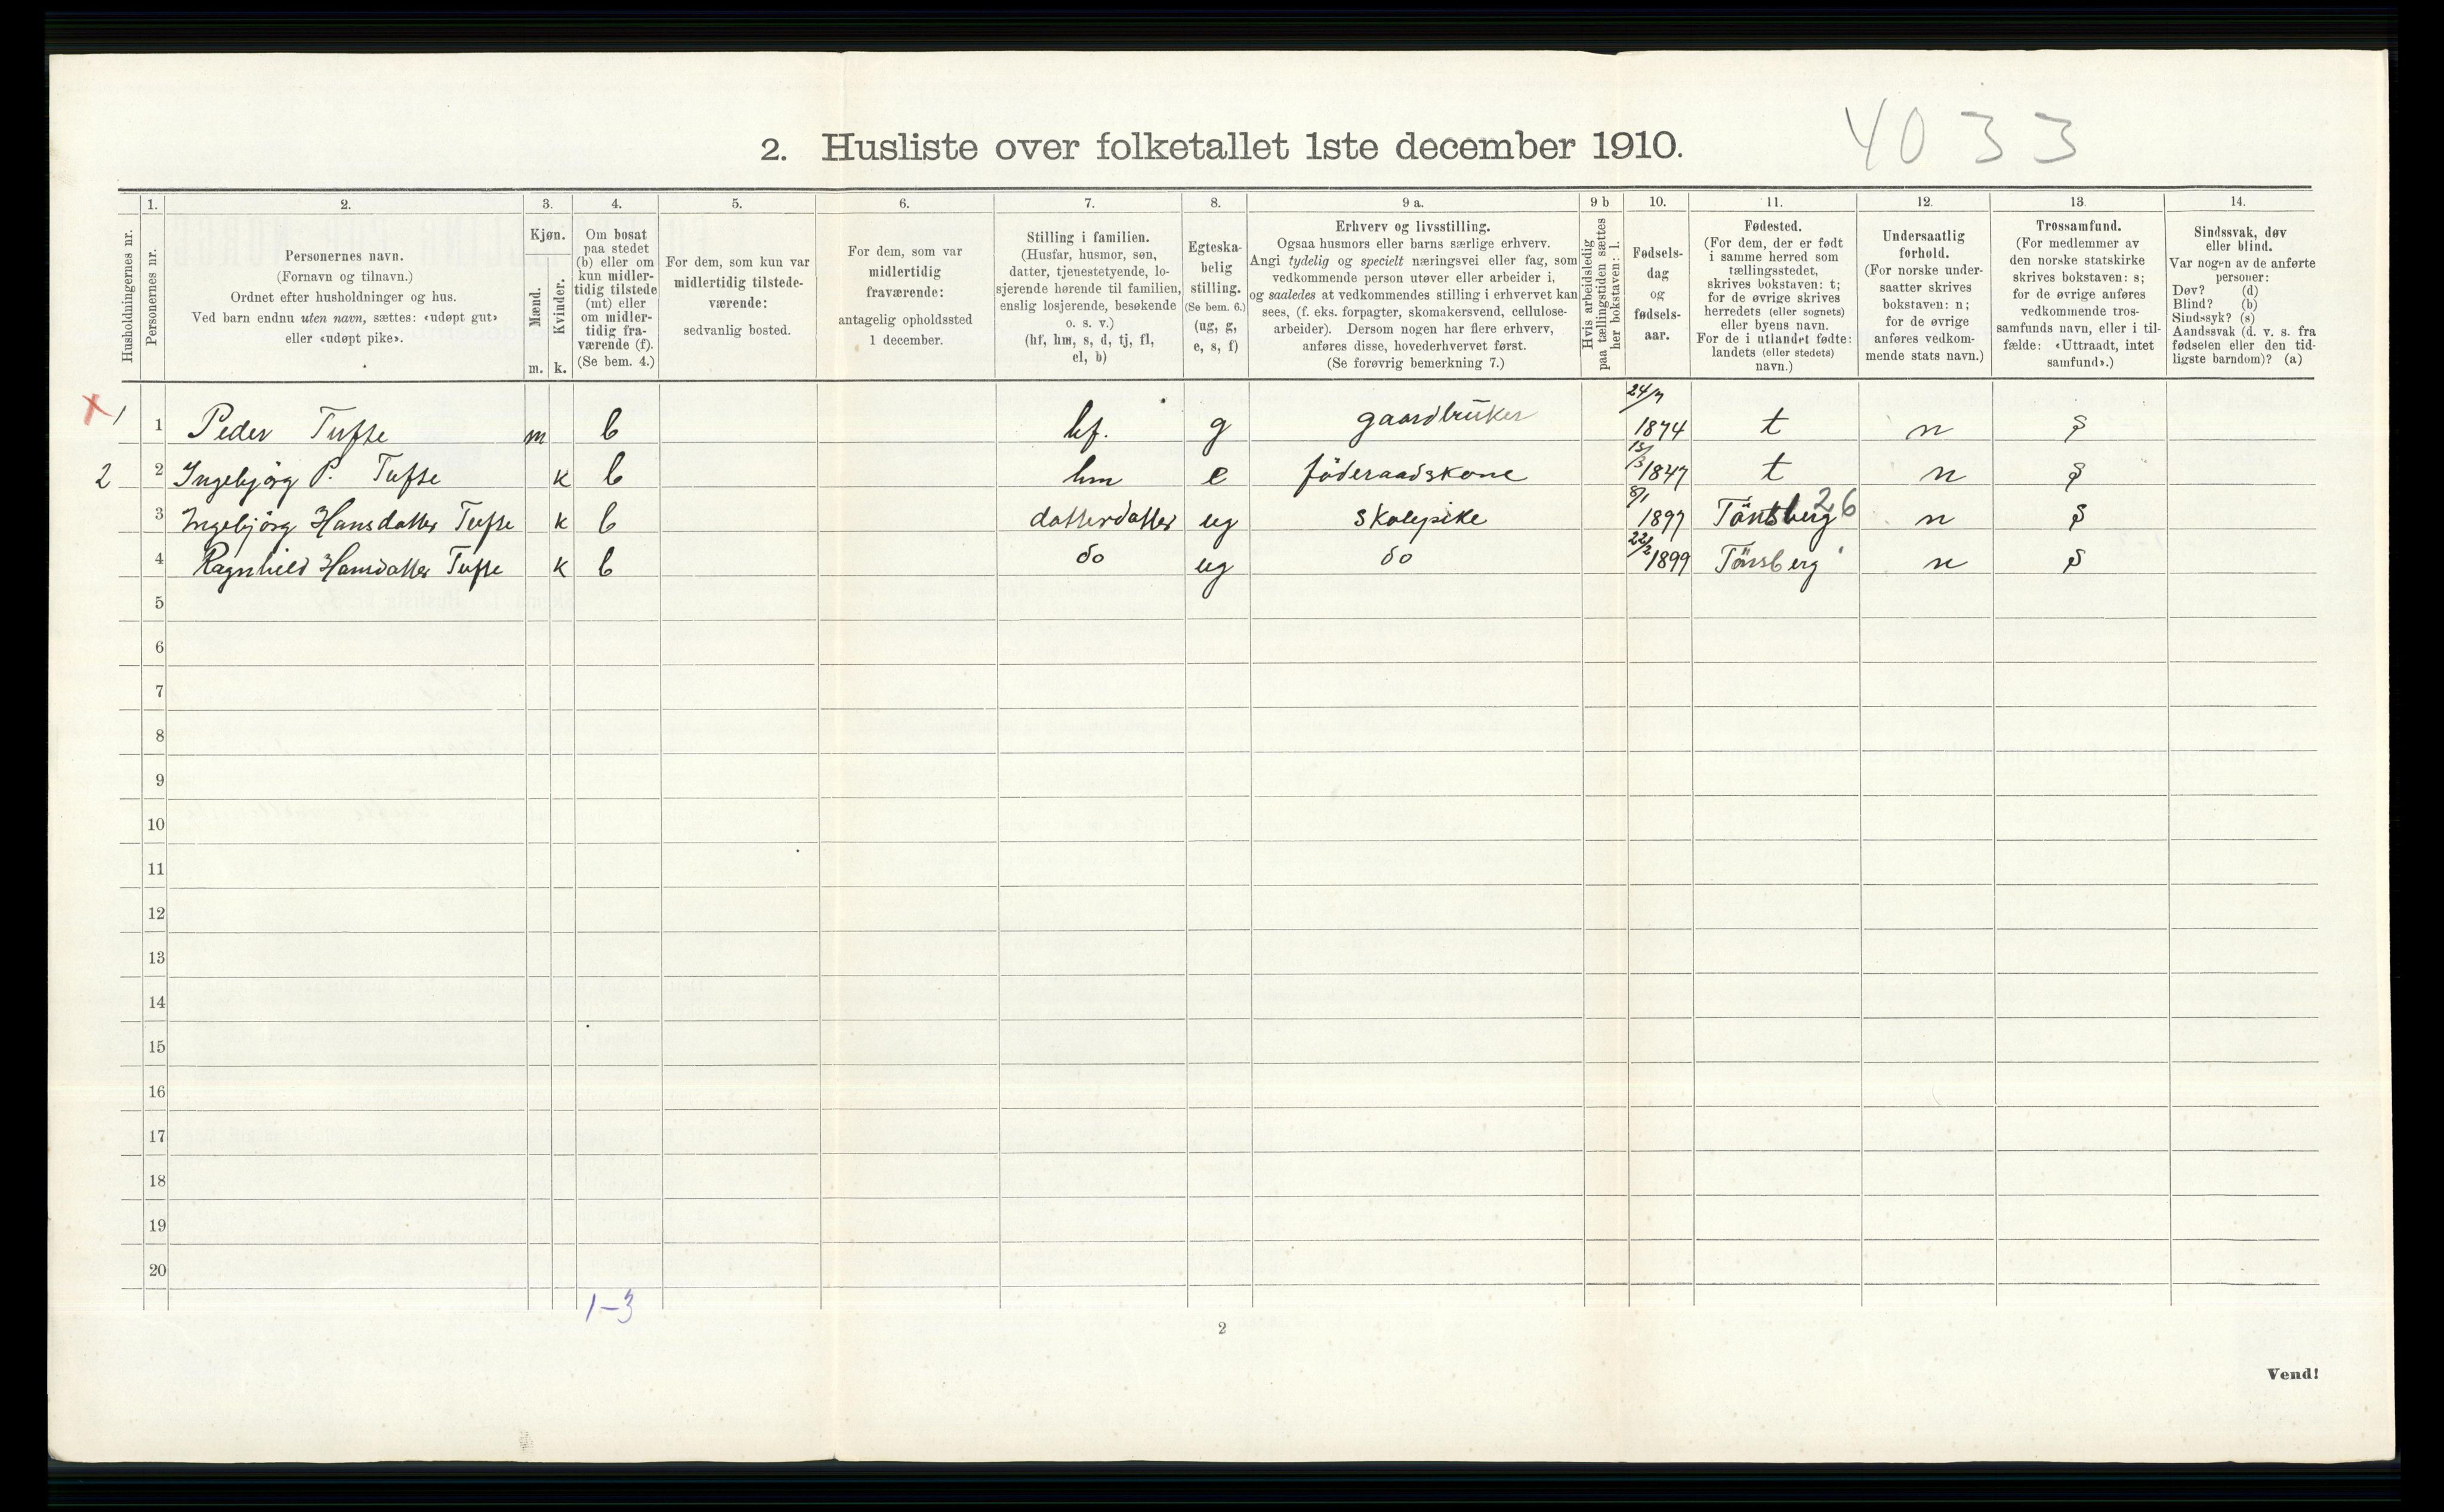 2. Husliste over folketallet 1ste december 1910.
4033
Husholdningernes nr.
1.
Personernes nr.
2.
Personernes navn.
(Fornavn og tilnavn.)
Ordnet efter husholdninger og hus.
Ved barn endnu uten navn, sættes: «udøpt gut»
eller «udøpt pike».
3.
Kjøn.
Mænd.
Kvinder.
m. k.
4.
Om bosat
paa stedet
(b) eller om
kun midler-
tidig tilstede
(mt) eller
om midler-
tidig fra-
værende (f).
(Se bem. 4.)
5.
For dem, som kun var
midlertidig tilstede-
værende:
sedvanlig bosted.
6.
For dem, som var
midlertidig
fraværende:
antagelig opholdssted
1 december.
7.
Stilling i familien.
(Husfar, husmor, søn,
datter, tjenestetyende, lo-
sjerende hørende til familien,
enslig losjerende, besøkende
o. s. v.)
(hf, hm, s, d, tj, fl,
el, b)
8.
Egteska-
belig
stilling.
(Se bem. 6.)
(ug, g,
e, s, f)
9 a.
Erhverv og livsstilling.
Ogsaa husmors eller barns særlige erhverv.
Angi tydelig og specielt næringsvei eller fag, som
vedkommende person utøver eller arbeider i,
og saaledes at vedkommendes stilling i erhvervet kan
sees, (f. eks. forpagter, skomakersvend, cellulose-
arbeider). Dersom nogen har flere erhverv,
anføres disse, hovederhvervet først.
(Se forøvrig bemerkning 7.)
9 b
Hvis arbeidsledig
paa tællingstiden sættes
her bokstaven: l.
10.
Fødsels-
dag
og
fødsels-
aar.
11.
Fødested.
(For dem, der er født
i samme herred som
tællingsstedet,
skrives bokstaven: t;
for de øvrige skrives
herredets (eller sognets)
eller byens navn.
For de i utlandet fødte:
landets (eller stedets)
navn.)
12.
Undersaatlig
forhold.
(For norske under-
saatter skrives
bokstaven: n;
for de øvrige
anføres vedkom-
mende stats navn.)
13.
Trossamfund.
(For medlemmer av
den norske statskirke
skrives bokstaven: s;
for de øvrige anføres
vedkommende tros-
samfunds navn, eller i til-
fælde: «Uttraadt, intet
samfund».)
14.
Sindssvak, døv
eller blind.
Var nogen av de anførte
personer:
Døv? (d)
Blind? (b)
Sindssyk? (s)
Aandssvak (d. v. s. fra
fødselen eller den tid-
ligste barndom)? (a)
x 1 1 Peder Tufte m b hf. g gaardbruker 24/7 1874 t n s
2 2 Ingebjørg P. Tufte k b hm e föderaadskone 13/3 1847 t n s
3 Ingebjörg Hansdatter Tufte k b datterdatter ug skolepike 8/1 1897 Tönsberg 26 n s
4 Ragnhild Hansdatter Tufte k b do ug do 22/2 1899 Tönsberg n s
5
6
7
8
9
10
11
12
13
14
15
16
17
18
19
20
1-3
2
Vend!